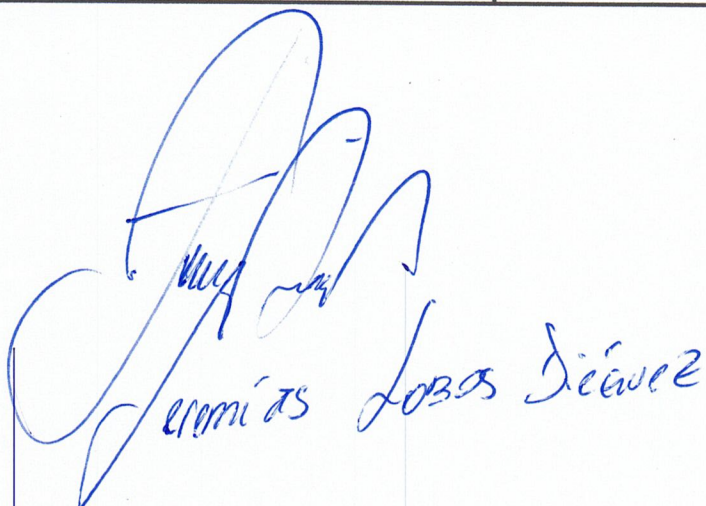 Jeremías Lobos Diéguez